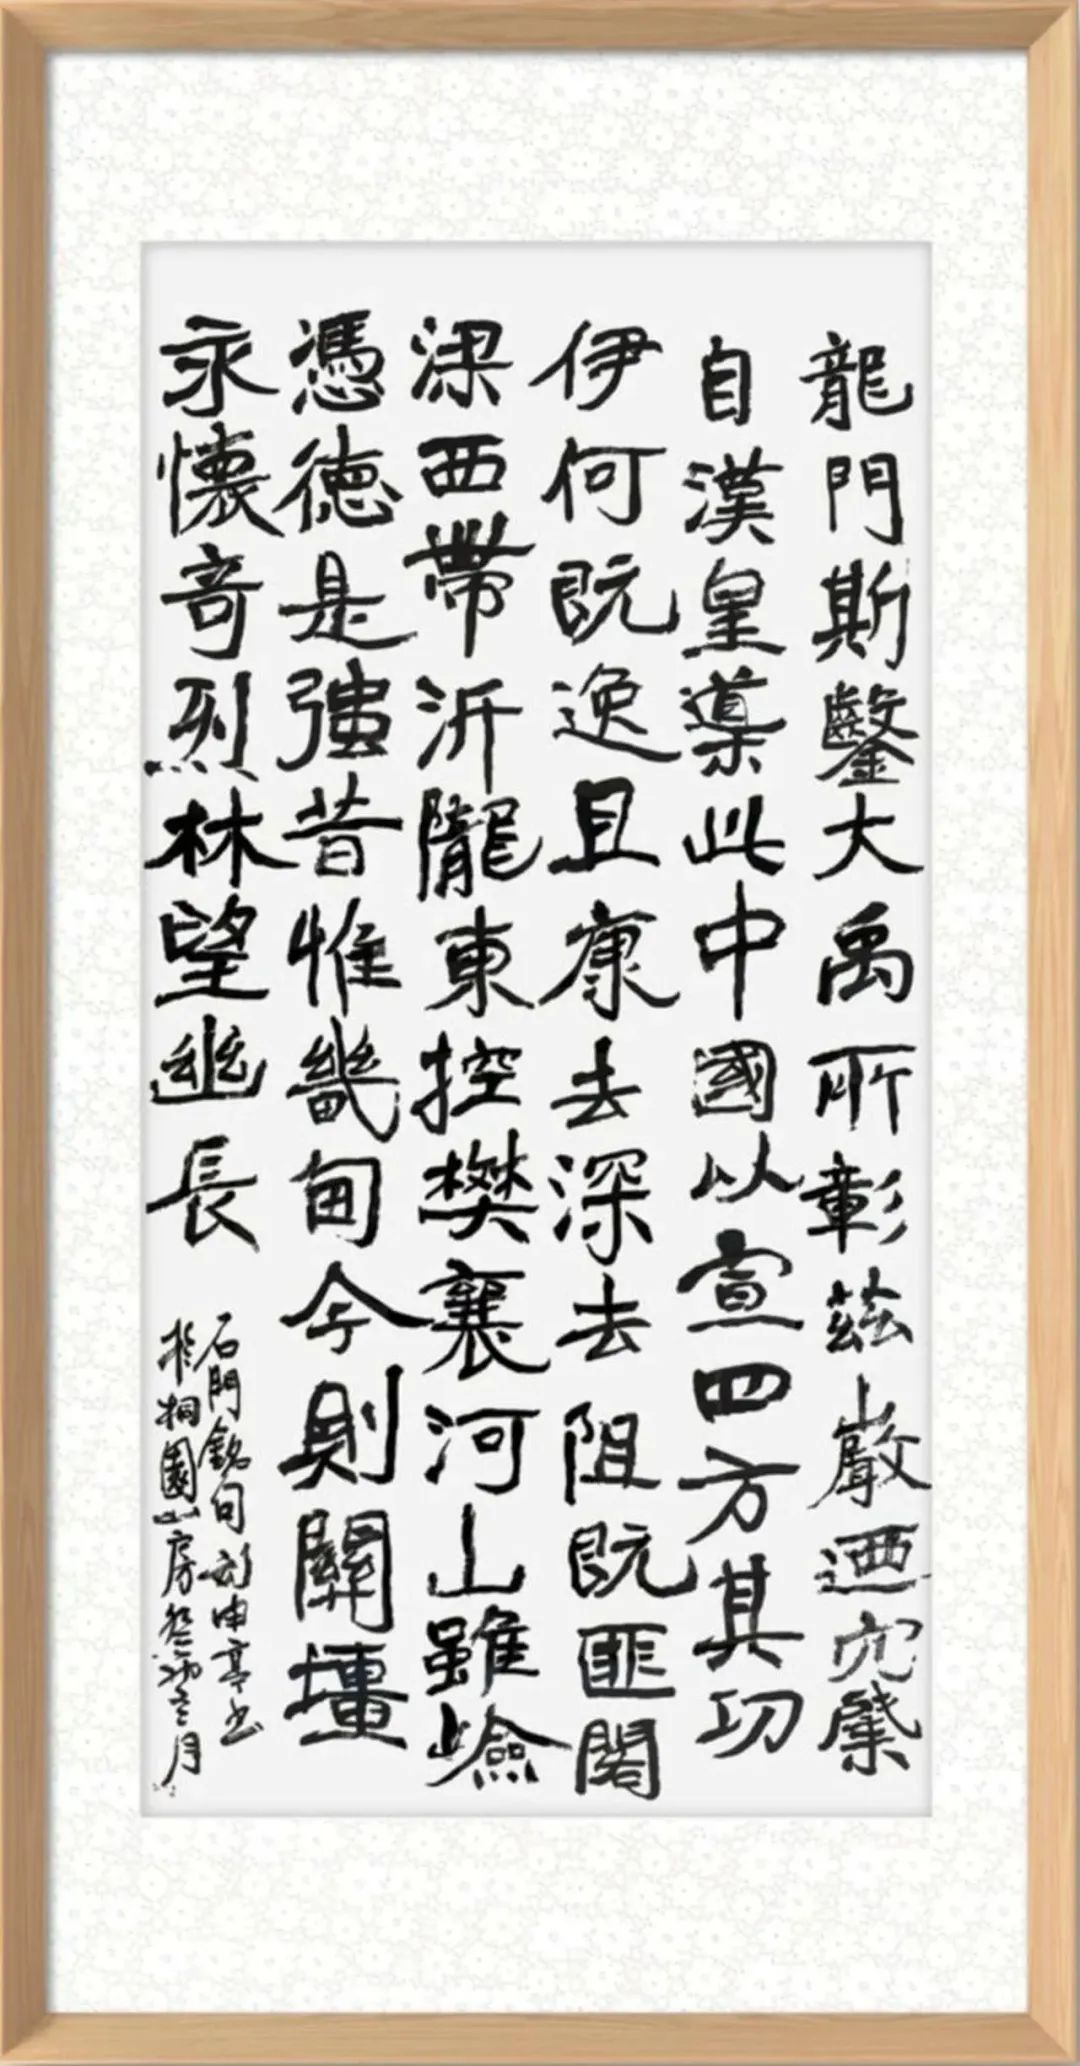 龍門斯鑿大禹所彰茲巖迺穴肇
自漢皇導此中國以宣四方其功
伊何既逸且康去深去阻既匪閣
梁西帶汧隴東控樊襄河山雖嶮
憑德是強昔惟畿甸今則關壃
永懷奇烈林望幽長
石門銘句劉申亭書
於桐園山房 月